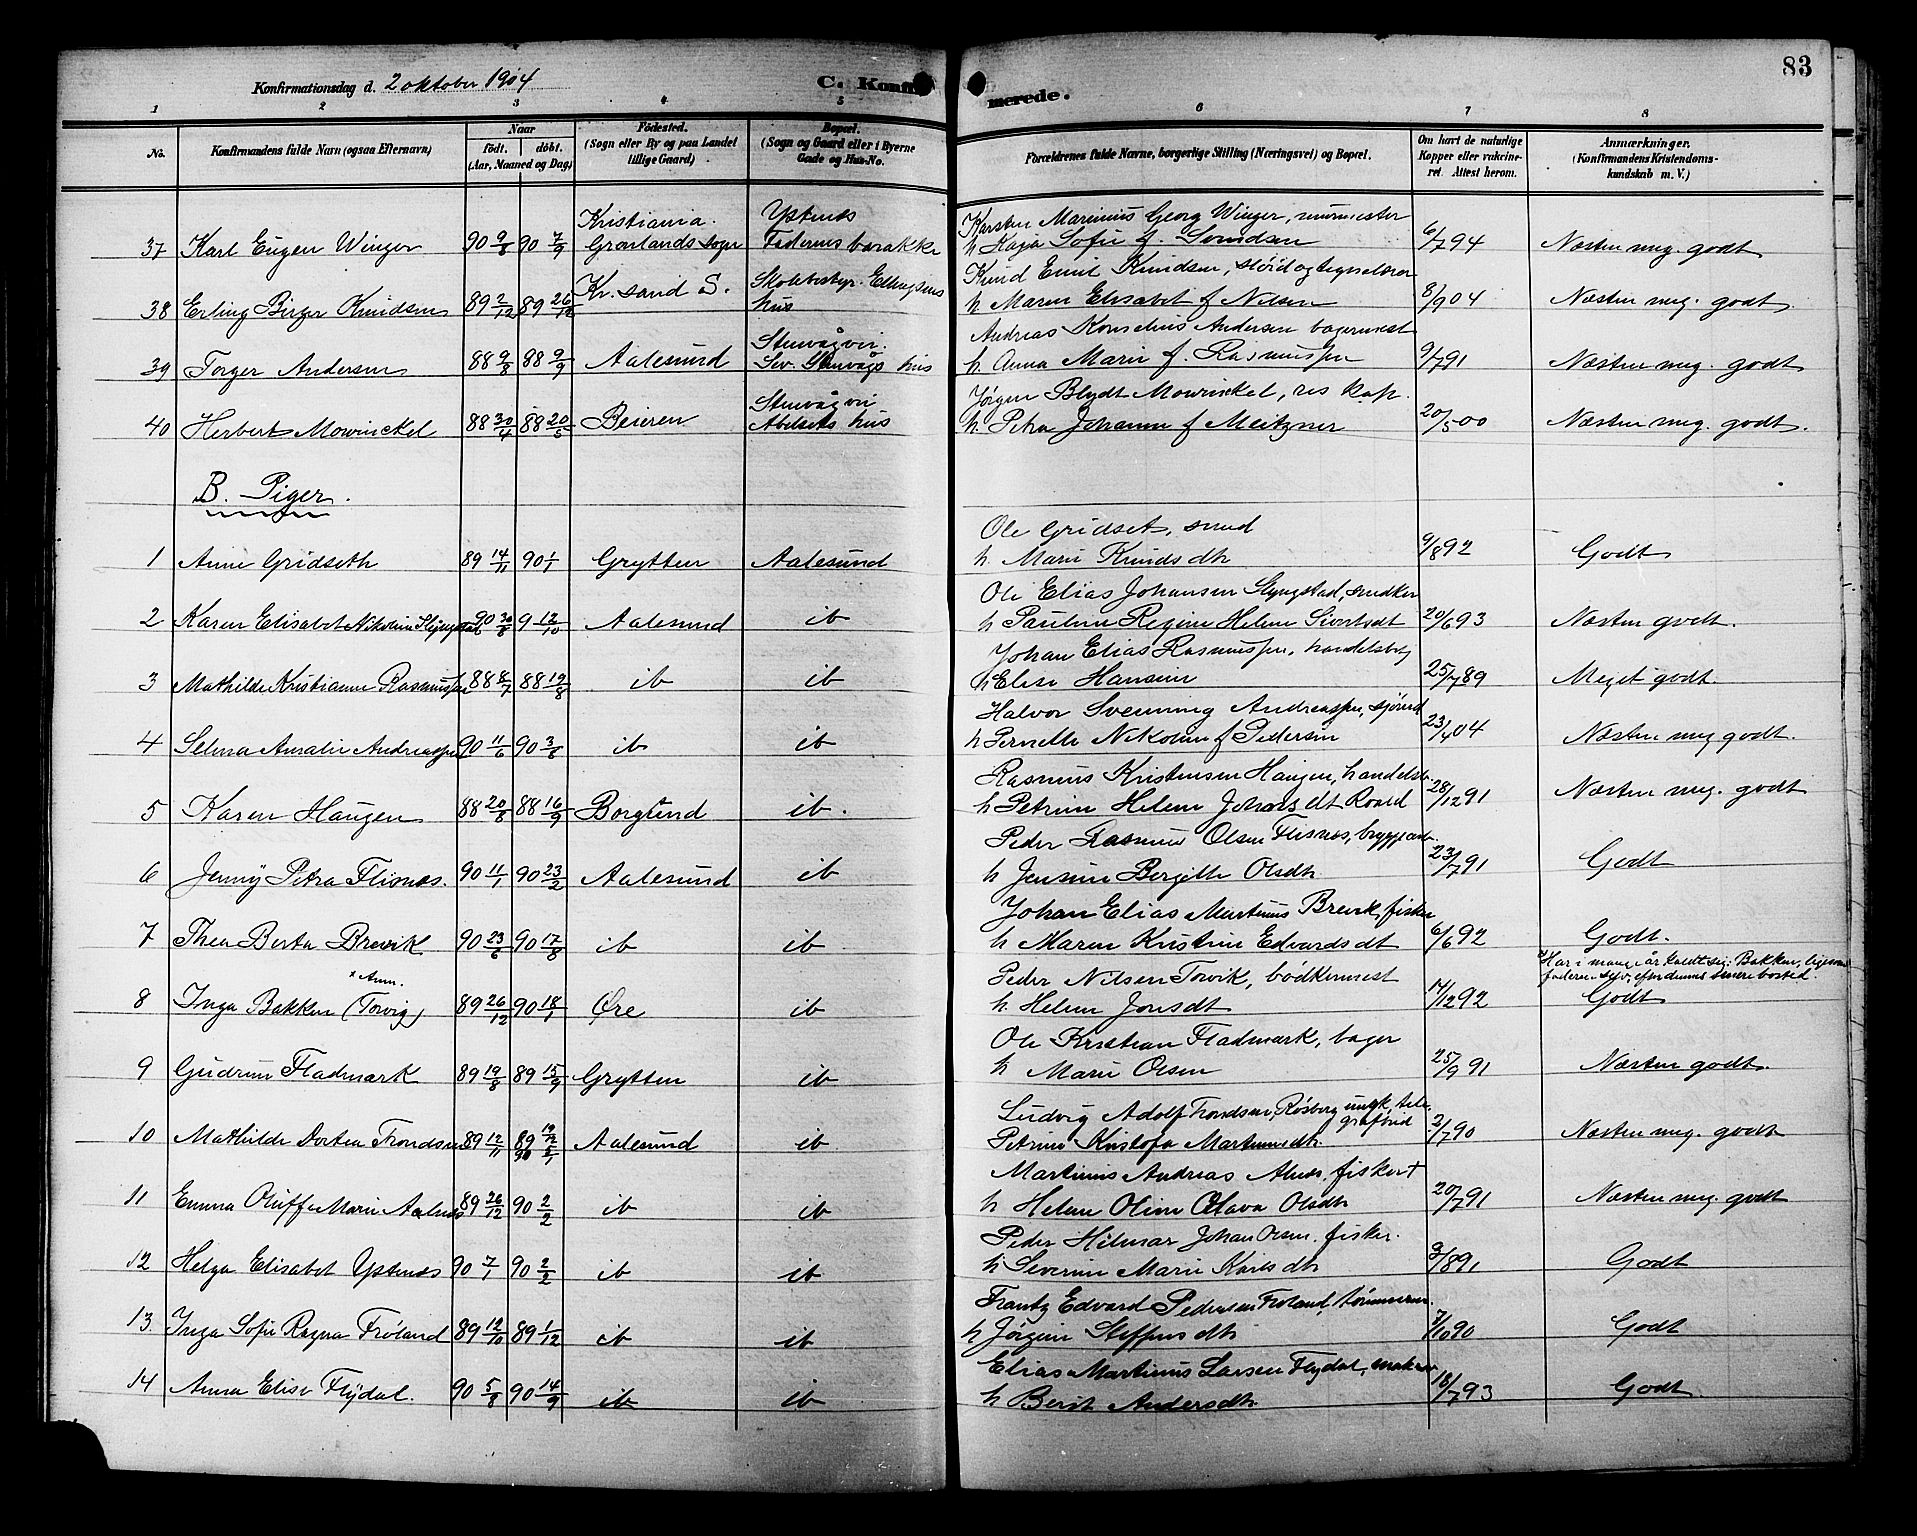 83
Konfirmationsdag d. 2 oktober 1904
C. Konfirmerede.
1 2 3 4 5 6 7 8
No. Konfirmandens fulde Navn (ogsaa Efternavn) Naar født. døbt. (Aar, Maaned og Dag) Fødested. (Sogn eller By og paa Landet tillige Gaard) Bopæl. (Sogn og Gaard eller i Byerne Gade og Hus-No. Forældrenes fulde Navne, borgerlige Stilling (Næringsvei) og Bopæl. Om havt de naturlige Kopper eller vakcineret. Attest herom. Anmærkninger. (Konfirmandens Kristendomskundskab m. V.)
Kristiania. Ystenes Karsten Marinius Georg Winger, murmester
37 Karl Eugen Winger 90 9/8 90 7/9 Grønlands sogn Federns barakke h. Kaja Sofie f. Svendsen 6/7 94 Næsten meg. godt
Knud Emil Knudsen, sløid og tegnelærer
38 Erling Birger Knudsen 89 2/12 89 26/12 Kr.sand S. Skolebestyr. Ellingsens hus h. Maren Elisabet f Nilsen 8/9 04 Næsten meg. godt.
Stenvågvei. Andreas Kornelius Andersen bagermest
39 Torger Andersen 88 9/8 88 9/9 Aalesund Sev. Stenvågs hus h. Anna Marie f. Rasmussen 9/7 91 Næsten meg. godt
Stenvågvei Jørgen Blydt Mowinckel, res kap.
40 Herbert Mowinckel 88 30/4 88 20/5 Beieren Abelseths hus h. Petra Johanne f Meitzner 20/5 00 Næsten meg. godt.
B. Piger.
Ole Gridset, smed
1 Anne Gridseth 89 14/11 90 1/1 Grytten Aalesund h. Marie Knudsdtr 9/8 92 Godt
Ole Elias Johansen Slyngstad, snedker
2 Karen Elisabet Nikoline Slyngstad 90 30/8 9 12/10 Aalesund ib h Pauline Regine Helene Sivertsdt 20/6 93 Næsten godt.
Johan Elias Rasmussen, handelsb
3 Mathilde Kristianne Rasmussen 88 8/7 88 19/8 ib ib h Elise Hansine 25/7 89 Meget godt.
Halvor Svenning Andreassen, sjømd
4 Selma Amalie Andreassen 90 11/6 90 3/8 ib ib h Pernelle Nikoline f Pedersen 23/4 04 Næsten meg godt.
Rasmus Kristensen Haugen, handelsb.
5 Karen Haugen 88 20/8 88 16/9 Borgund ib. h Petrine Helene Johansdt Roald 28/12 91 Næsten meg. godt
Peder Rasmus Olsen Flisnes, bryggearb.
6 Jenny Petra Flisnes. 90 11/1 90 23/2 Aalesund ib h Jensine Bergitte Olsdtr 23/7 91 Godt
Johan Elias Martinus Brevik, fisker
7 Thea Berta Brevik 90 23/6 90 17/8 ib ib h Maren Kristine Edvardsdt 6/6 92 Godt.
x Anm. Peder Nilsen Torvik, bødkermest x Har i mange år kaldt sig: Bakken, ligesom faderen selv, efter dennes senere bosted.
8 Inga Bakken (Torvig) 89 26/12 90 18/1 Øre ib h. Helene Jonsdt 17/12 92 Godt
Ole Kristian Fladmark, bager
9 Gudrun Fladmark 89 19/8 89 15/9 Grytten ib h Marie Olsen 25/9 91 Næsten godt.
Ludvig Adolf Trondsen, Røsberg ungk, telegrafbud
10 Mathilde Dortea Trondsen 89 12/11 89 19/12 90 5/1 Aalesund ib Petrine Kristofa Martinusdtr 2/7 90 Næsten meg. godt
Martinus Andreas Alnes, fisker +
11 Emma Oluffe Marie Aalnes 89 26/12 90 2/2 ib ib h Helene Oline Olava Olsdtr 20/7 91 Næsten meg. godt
Peder Hilmar Johan Olsen, fisker.
12 Helga Elisabet Ystenes 90 7/1 90 2/2 ib ib h Severine Marie Karlsdtr 3/8 91 Godt
Frantz Edvard Pedersen Frøland, tømmerm.
13. Inga Sofie Ragna Frøland 89 12/10 89 1/12 ib ib h Jørgine Steffensdtr 7/10 90 Godt
Elias Martinus Larsen Flydal, maler
14 Anna Elise Flydal. 90 5/8 90 14/9 ib ib h Berit Andersdtr. 18/7 93 Godt